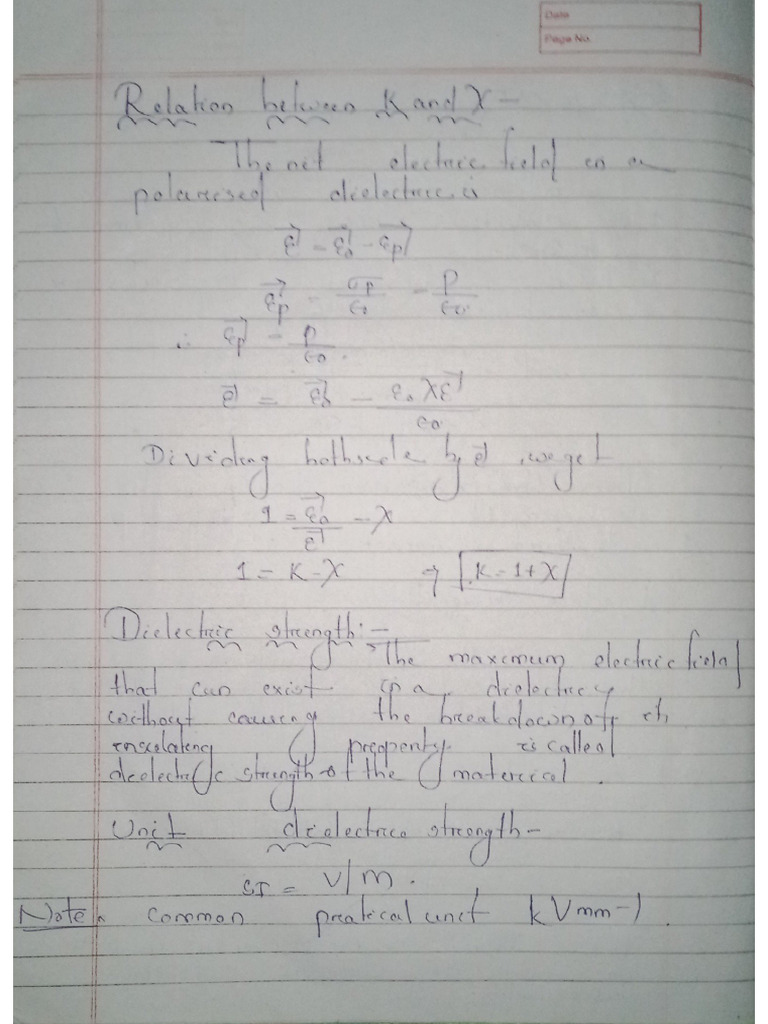 Date
Page No.
Relation between K and χ -
The net electric field in a
polarised dielectric is
ε⃗ = ε⃗₀ - ε⃗p
ε⃗p = σp/ε₀ = P/ε₀
∴ ε⃗p = P/ε₀.
ε⃗ = ε⃗₀ - ε₀χε⃗/ε₀
Dividing bothside by ε⃗, we get
1 = ε⃗₀/ε⃗ - χ
1 = K - χ ⇒ K = 1 + χ
Dielectric strength :-
The maximum electric field
that can exist in a dielectric
without causing the breakdown of
insulating property is called
dielectric strength of the material.
Unit dielectrice strength -
SI = V/m.
Note common pratical unit kVmm-1.